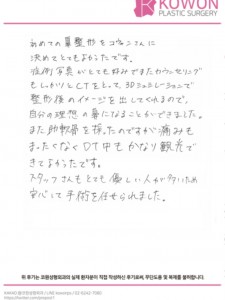 KOWON
PLASTIC SURGERY
初めての鼻整形をコウォンさんに
決めてとてもよかったです。
症例写真がとても好みでまたカウンセリング
もしっかりCTをとして、3Dシミュレーションで
整形後のイメージを出してくれるので、
自分の理想の鼻になることができました。
また肋軟骨を採ったのですが痛みも
まったくなくDT中もかなり観光で
きてよかったです。
スタッフさんもとても優しい人が多いため
安心して手術を任せられました。
위 후기는 코원성형외과의 실제 환자분이 직접 작성하신 후기로써, 무단도용 및 복제를 불허합니다.